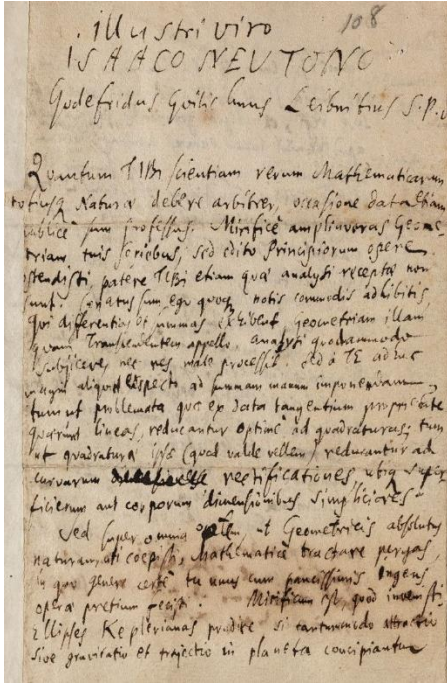 illustri viro 108
ISAACO NEUTONO
Godefridus Guilielmus Leibnitius S. P. D
Quantum TIBI scientiam rerum Mathematicarum
totiusq Naturæ debere arbitrer, occasione data etiam
publice sum professus. Mirificè ampliaveras Geome-
triam tuis seriebus, sed edito Principiorum opere
ostendisti, patere TIBI etiam quæ analysi receptæ non
sunt. Conatus sum ego quoq notis commodis adhibitis,
quæ differentias et summas exhibent Geometriam illam
quam Transcendentem appello, Analysi quodammodo
subjicere, nec res male processit. sed à TE adhuc
magni aliquid expecto, ad summam manum imponendam
tum ut problemata quæ ex data tangentium proprietate
quærunt lineas, reducantur optime ad quadraturas; tum
ut quadraturæ ipsæ (quod valde vellem) reducantur ad
curvarum rectificationes, utiq super
ficierum aut corporum dimensionibus simpliciores
Sed super omnia optem, ut Geometricis absolutis
naturam, uti coepisti, Mathematicè tractare pergas
in quo genere certè tu unus cum paucissimis ingens
operæ pretium fecisti. Mirificum est, quod invenisti
Ellipses Keplerianas prodire si tantummodo attractio
sive gravitatio et trajectio in planeta concipiantur